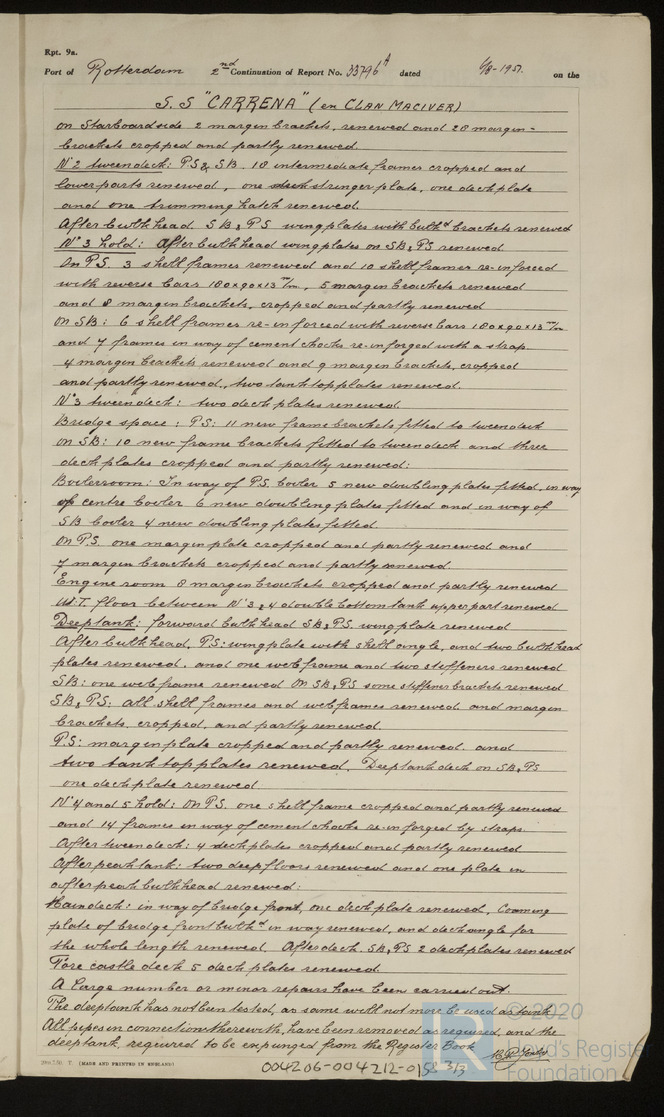 Rpt. 9a.
Port of Rotterdam 2nd Continuation of Report No. 33796A dated 6/8-1957. on the
S.S "CARRENA" (ex CLAN MACIVER)
on Starboardside 2 margin brackets, renewed and 28 margin-
brackets cropped and partly renewed
No 2 tweendeck: PS & SB. 18 intermediate frames cropped and
lowerparts renewed, one stringerplate, one deckplate
and one trimming hatch renewed.
After bulkhead. SB & PS wingplates with bulkhd brackets renewed
No 3 hold: After bulkhead wingplates on SB & PS renewed
On PS. 3 shell frames renewed and 10 shell frames re-inforced
with reverse bars 180x90x13 m/m, 5 margin brackets renewed
and 8 margin brackets, cropped and partly renewed
on SB: 6 shell frames re-inforced with reverse bars 180x90x13 m/m
and 7 frames in way of cement chocks re-inforged with a strap
4 margin brackets renewed and 9 margin brackets, cropped
and partly renewed, two tanktopplates renewed.
No 3 tweendeck: two deckplates renewed.
Bridge space: PS: 11 new frame brackets fitted to tweendeck
on SB: 10 new frame brackets fitted to tweendeck and three
deckplates cropped and partly renewed:
Boilerroom: In way of PS. boiler 5 new doubling plates fitted, in way
of centre boiler 6 new doubling plates fitted and in way of
SB boiler 4 new doubling plates fitted
On P.S. one margin plate cropped and partly renewed and
7 margin brackets cropped and partly renewed
Engine room 8 margin brackets cropped and partly renewed
W.T. floor between No 3 & 4 double bottom tank upperpart renewed
Deeptank: forward bulkhead SB & PS wingplate renewed
After bulkhead, PS: wingplate with shell angle, and two bulkhead
plates renewed. and one webframe and two stiffeners renewed
SB: one webframe renewed On SB & PS some stiffener brackets renewed
SB & PS: all shell frames and webframes renewed and margin
brackets, cropped, and partly renewed.
PS: marginplate cropped and partly renewed. and
two tanktopplates renewed. Deeptank deck on SB & PS
one deckplate renewed
No 4 and 5 hold: On PS. one shell frame cropped and partly renewed
and 14 frames in way of cement chocks re-inforged by straps.
After tweendeck: 4 deckplates cropped and partly renewed
After peaktank: two deepfloors renewed and one plate in
afterpeak bulkhead renewed:
Maindeck: in way of bridge front, one deckplate renewed, Coaming
plate of bridge front bulkhd in way renewed, and deck angle for
the whole length renewed. Afterdeck. SB & PS 2 deckplates renewed
Fore castle deck 5 deck plates renewed.
A large number or minor repairs have been carried out.
The deeptank has not been tested, as same will not more be used as tank
All pipes in connection therewith, have been removed as required, and the
deeptank, required to be expunged from the Register Book
(MADE AND PRINTED IN ENGLAND)
004206-004212-0158 3/3
© 2020
Lloyd's Register
Foundation